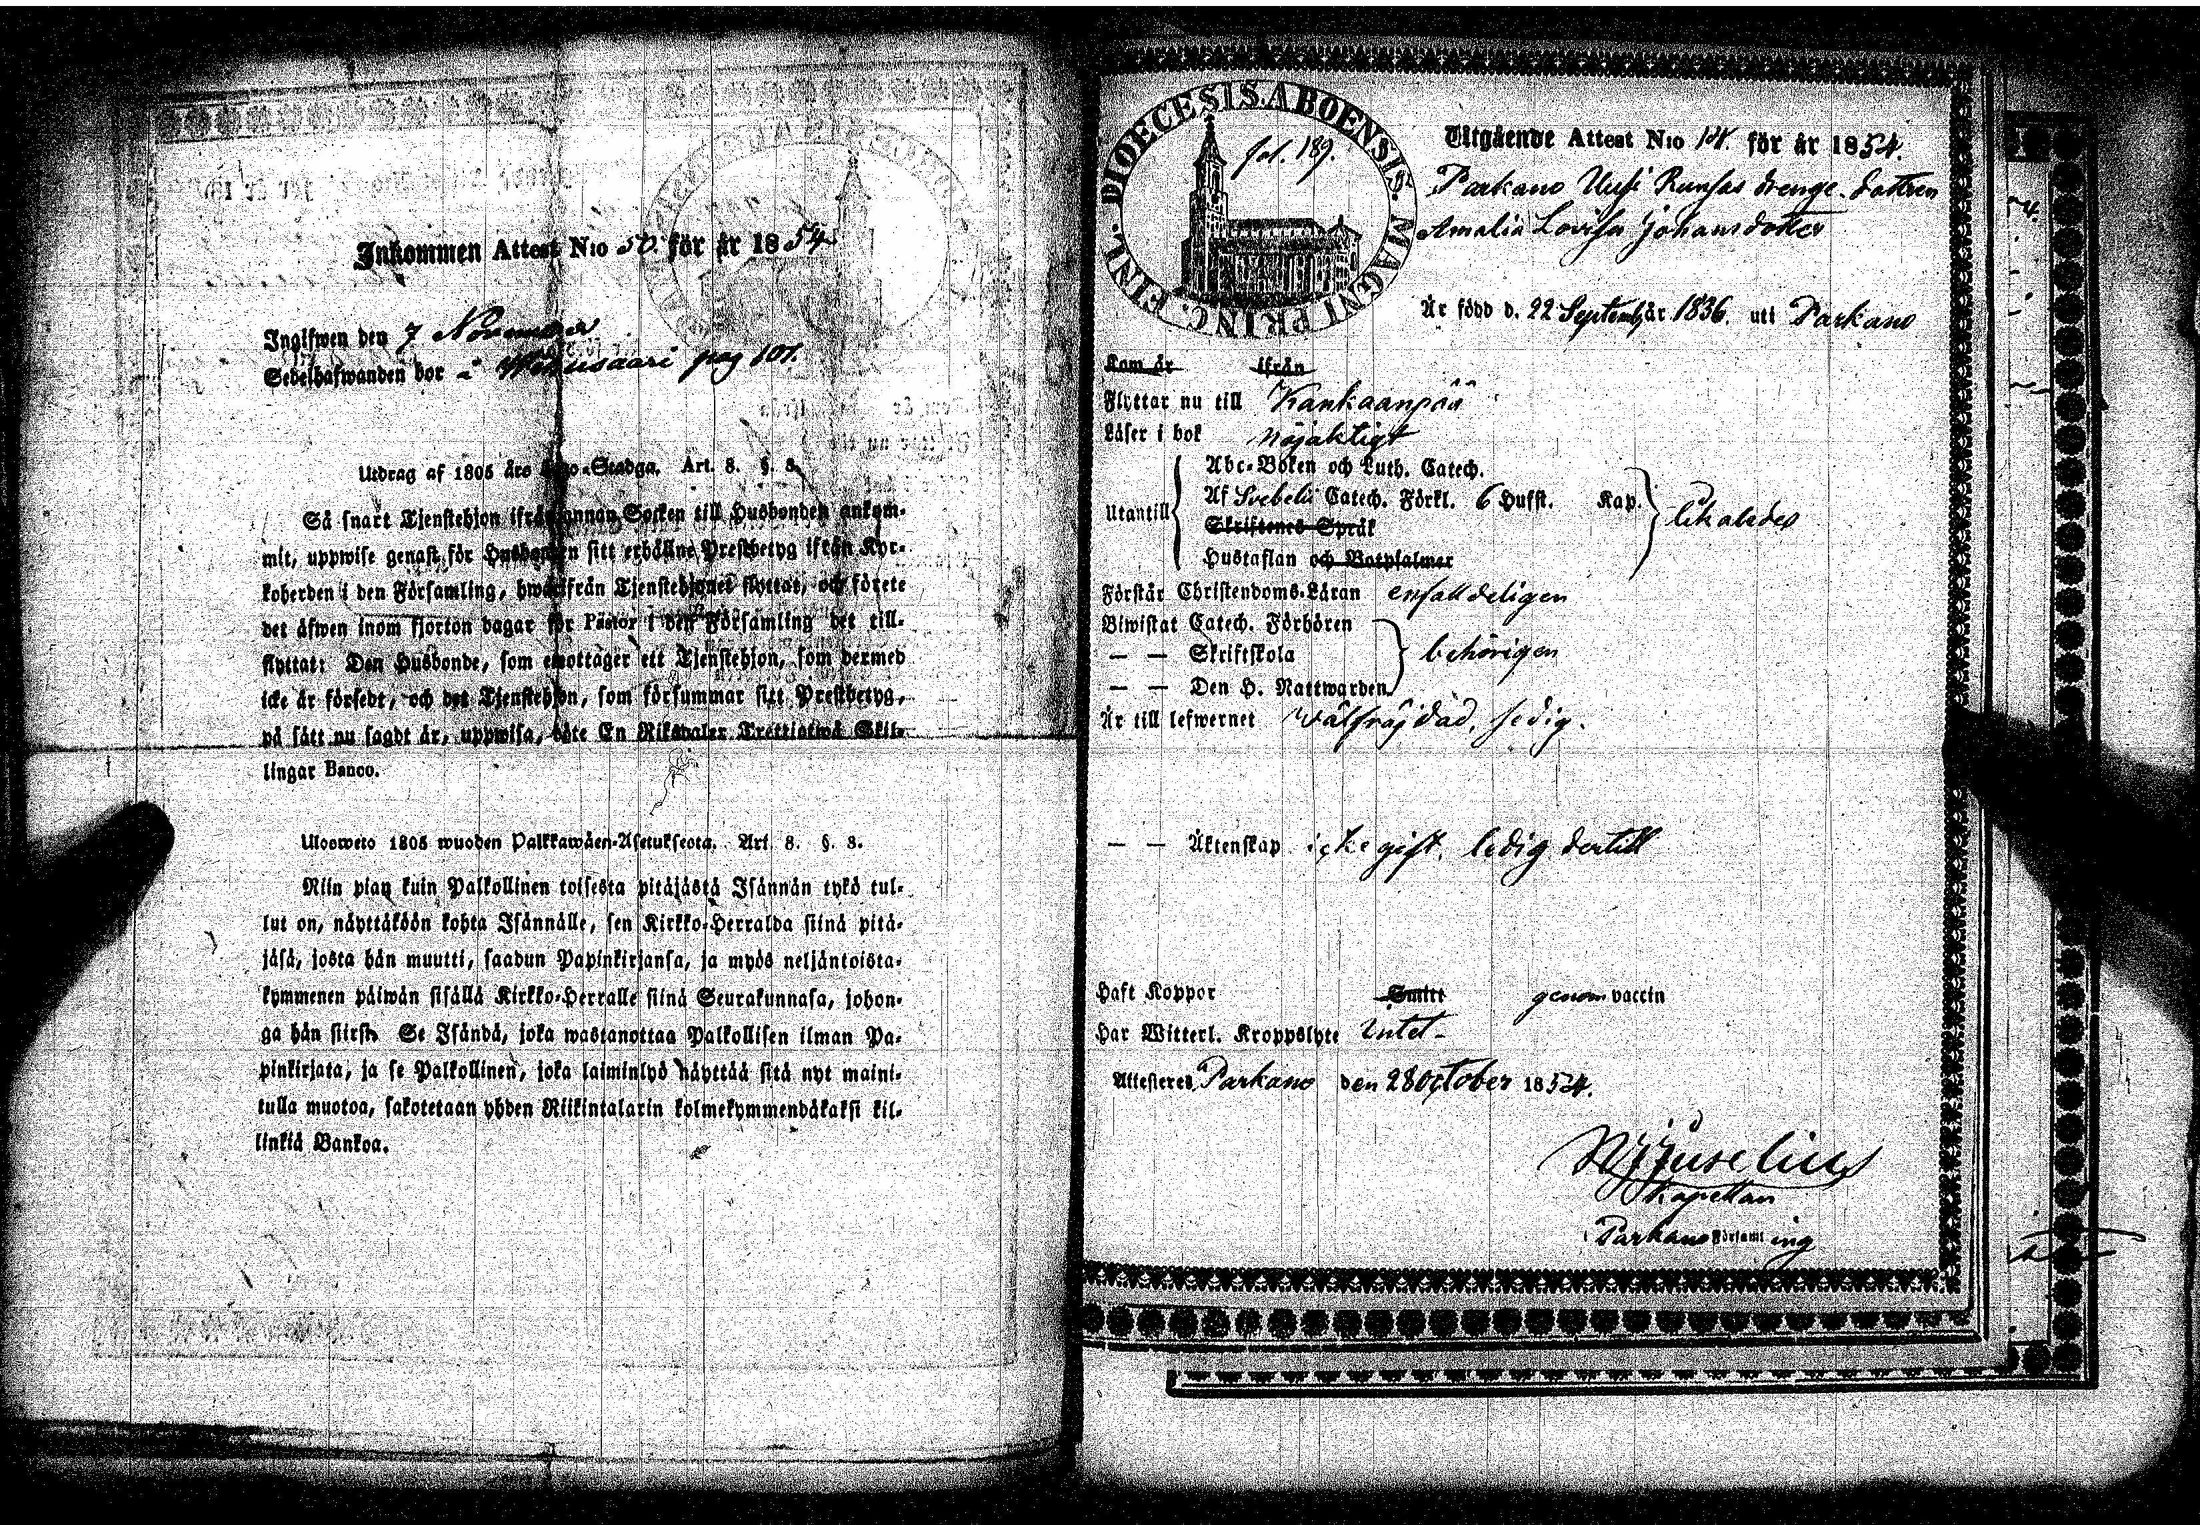 Inkommen Attest N:o 50. för år 1854
Ingifwen den 7 November
Sedelhafwanden bor i pag 107.
Utdrag af 1805 års Stadga. Art. 8. §. 8.
Så snart Tjenstehjon ifrån annan Socken till Husbonden ankom-
mit, uppwise genast för Husbonden sitt erhållne Prestbetyg ifrån Kyr-
koherden i den Församling, hwarifrån Tjenstehjonet flyttat, och förete
det äfwen inom fjorton dagar för Pastor i den Församling det till-
flyttat: Den Husbonde, som emottager ett Tjenstehjon, som dermed
icke är försedt, och det Tjenstehjon, som försummar sitt Prestbetyg,
på sätt nu sagdt är, uppwisa, böte En Riksdaler Trettiotwå Skil-
lingar Banco.
Ulosweto 1805 wuoden Palkkawäen-Asetuksesta. Art. 8. §. 8.
Niin pian kuin Palkollinen toisesta pitäjästä Isännän tykö tul-
lut on, näyttäköön kohta Isännälle, sen Kirkko-Herralda siinä pitä-
jäsä, josta hän muutti, saadun Papinkirjansa, ja myös neljäntoista-
kymmenen päiwän sisällä Kirkko-Herralle siinä Seurakunnasa, johon-
ga hän siirsi. Se Isändä, joka wastanottaa Palkollisen ilman Pa-
pinkirjata, ja se Palkollinen, joka laiminlyö näyttää sitä nyt maini-
tulla muotoa, sakotetaan yhden Riikintalarin kolmekymmendäkaksi kil-
linkiä Bankoa.
DIOECESIS ABOENSIS. MAGNI PRINC. FINL.
fol. 189.
Utgående Attest N:o 14. för år 1854.
Parkano Uusi Runsas drenge dottren
Amalia Lovisa Johansdotter
Är född d. 22 Septemb år 1836. uti Parkano
Kom år ifrån
Flyttar nu till Kankaanpää
Läser i bok nöjaktigt
Utantill
Abc-Boken och Luth. Catech.
Af Svebelii Catech. Förkl. 6 Hufst. Kap.
likaledes
Skriftenes Språk
Hustaflan och Botpsalmer
Förstår Christendoms-Läran enfalldeligen
Biwistat Catech. Förhören
— — Skriftskola behörigen
— — Den H. Nattwarden
Är till lefwernet wälfräjdad, sedig.
— — Äktenskap icke gift, ledig dertill
Haft Koppor Smitt genom vaccin
Har Witterl. Kroppslyte intet
Attesteres, Parkano den 28 October 1854.
Juselius
Kapellan
i Parkano Församling